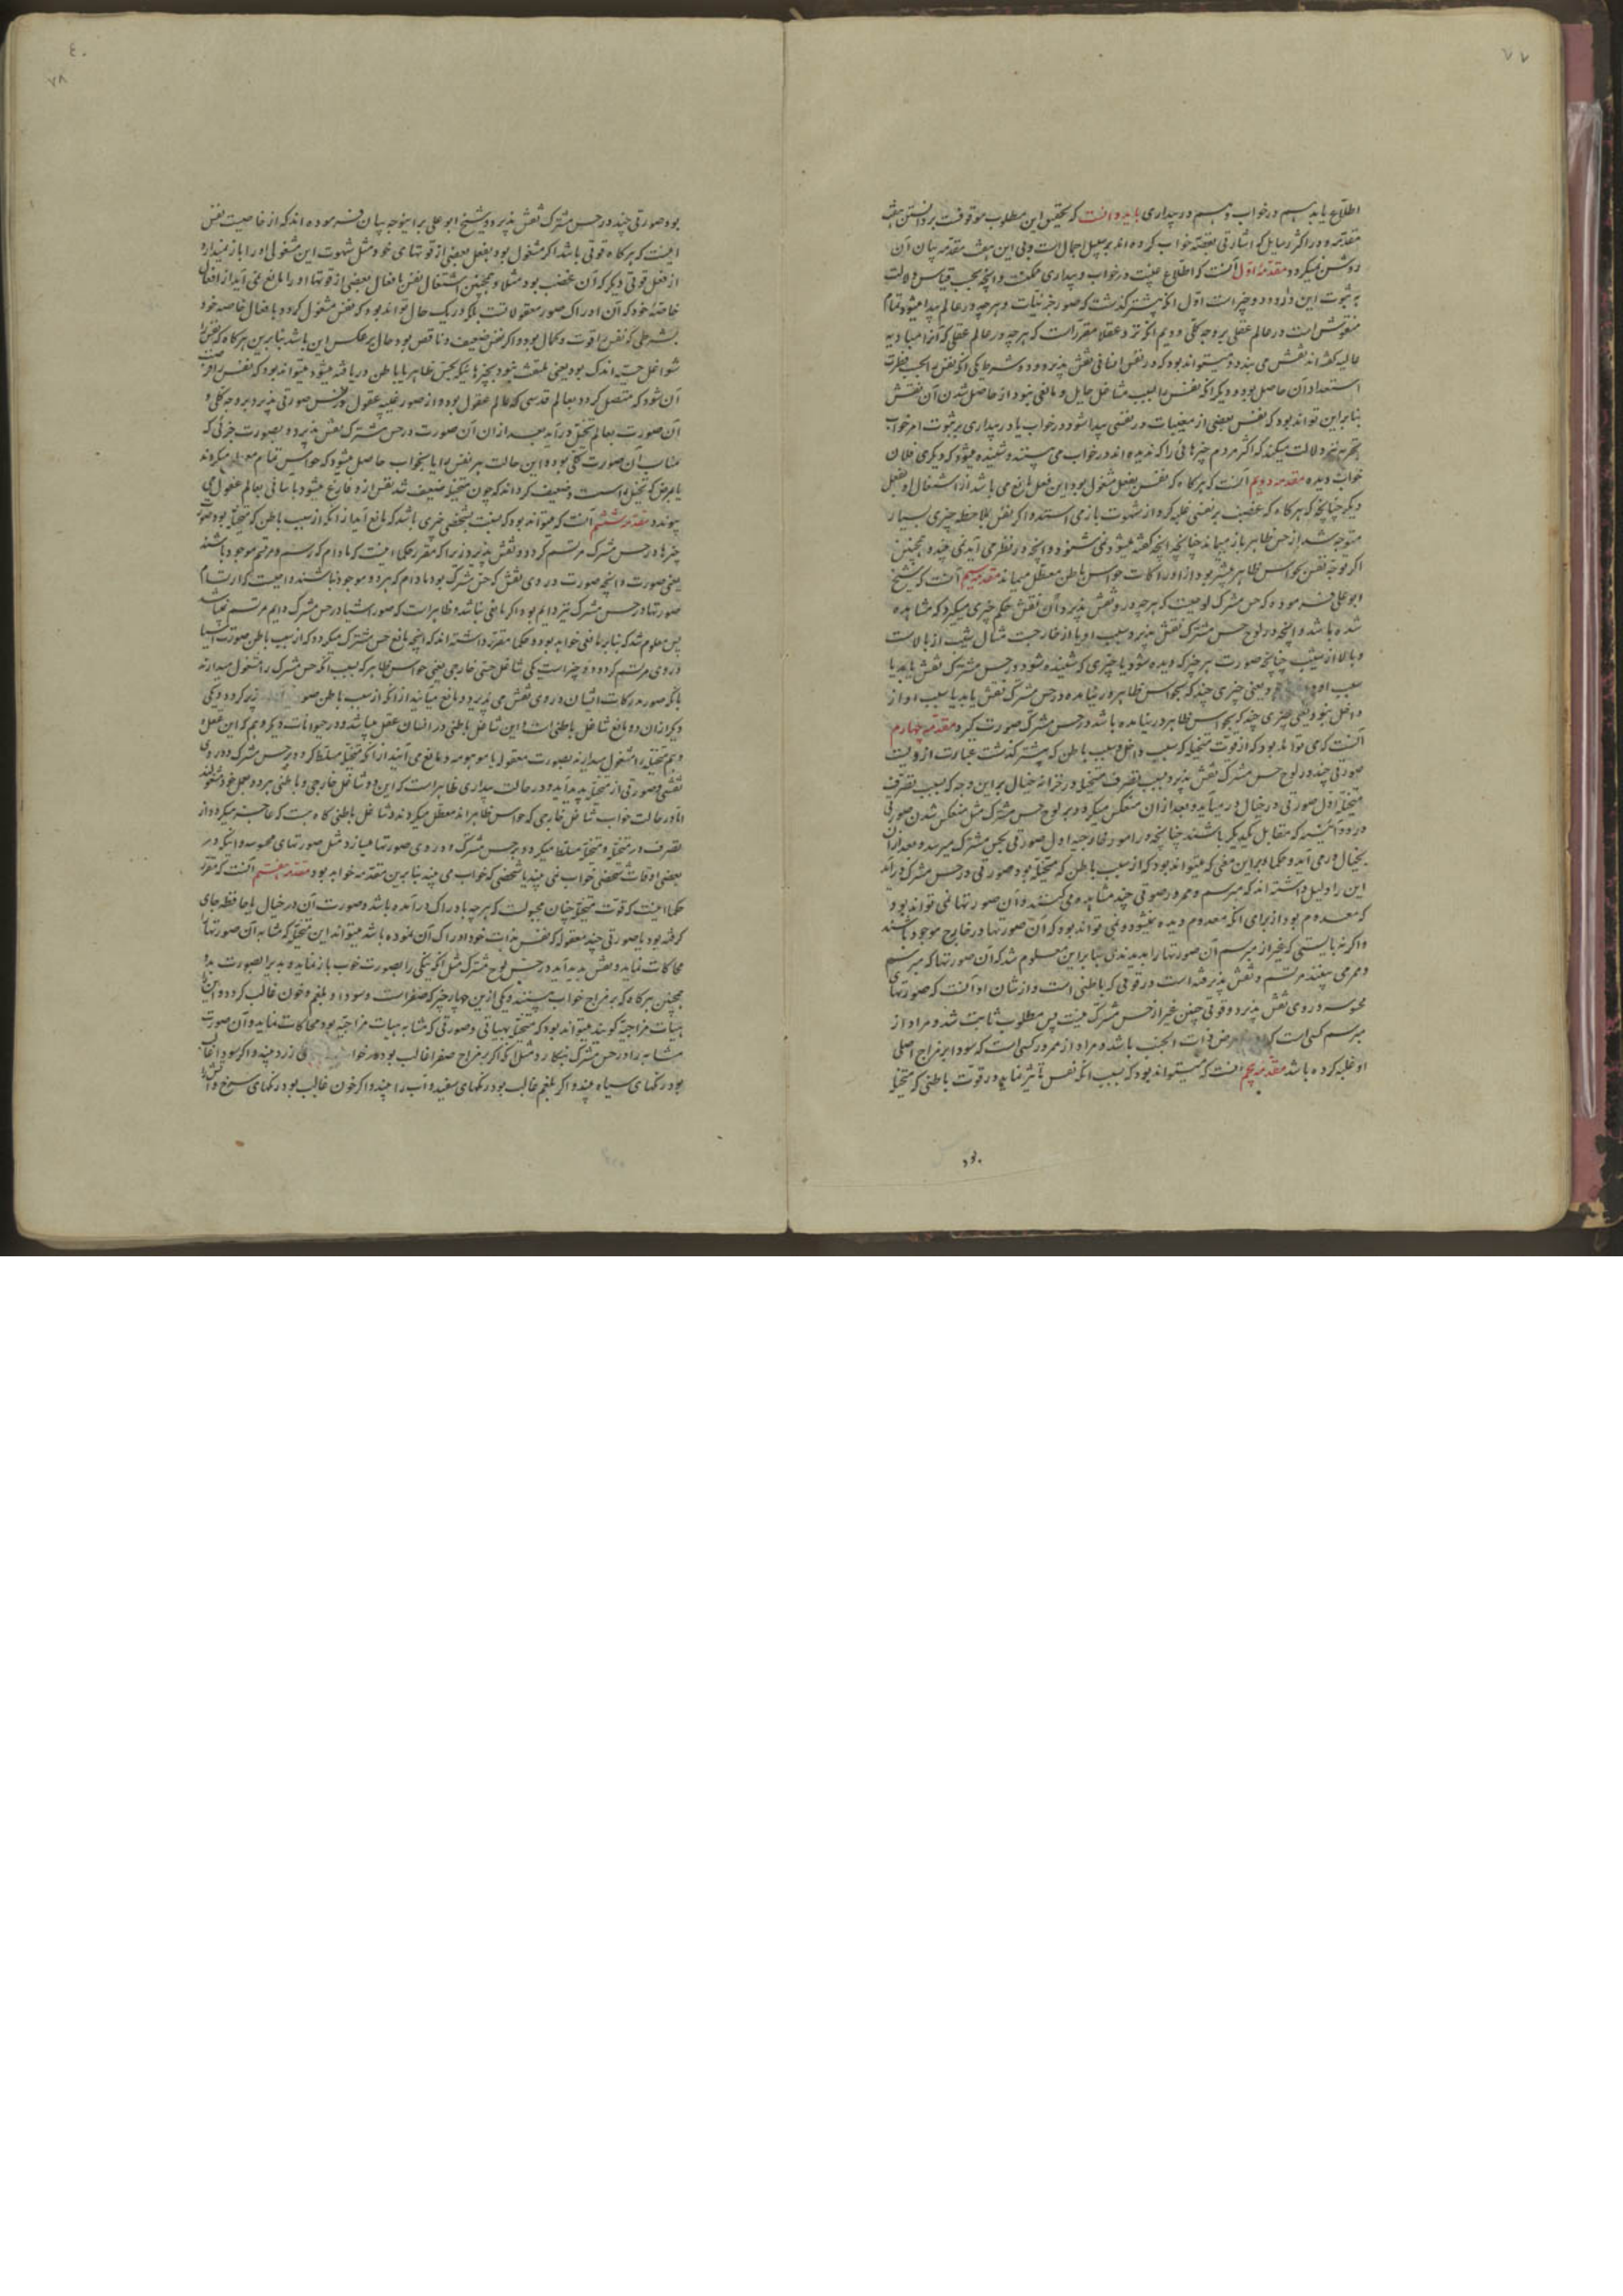 ٧٧
اطلاع یابد هم در خواب و هم در بیداری باید دانست که تحقیق این مطلوب موقوفست بر دانستن هفت
مقدمه و در اکثر رسایل که اشارتی بقصه خواب کرده اند بر سبیل اجمالست و بی این هفت مقدمه بیان آن
روشن نمیکردد مقدمه اول آنست که اطلاع غیب در خواب و بیداری ممکنست و آنچه بحسب قیاس دلالت
بر ثبوت این دارد دو چیز است اول آنکه پیشتر گذشت که صور جزئیات و هر چه در عالم پیدا میشود تمام
منقوش است در عالم عقلی بر وجه کلی دویم آنکه نزد عقلا مقرر است که هر چه در عالم عقلی که آنرا مبادیه
عالیه گفته اند نقش می بندد میتواند بود که در نفس انسانی نقش پذیرد و دو شرط یکی آنکه نفس را بحسب فطرت
استعداد آن حاصل بود و دیگر آنکه نفس را بسبب مشاغل حایل و مانعی نبود از حاصل شدن آن نقش
بنابراین تواند بود که نفس بعضی از مغیبات در نفسی پیدا شود در خواب یا در بیداری بر ثبوت امر خواب
تجربه نیز دلالت میکند که اکثر مردم چیزهائی را که ندیده اند در خواب می بینند و شنیده میشود که دیگری فلان
خواب دیده مقدمه دویم آنست که هرگاه که نفس بفعلی مشغول بود این فعل مانع می باشد از اشتغال او بفعل
دیگر چنانچه هرگاه که غضب بر نفسی غلبه کرد از شهوت باز می استد و اگر نفس بملاحظه چیزی بسیار
متوجه شد از حس ظاهر باز میماند چنانچه آنچه گفته میشود نمی شنود و آنچه در نظر می آید نمی بیند و همچنین
اگر توجه نفس بحواس ظاهر بیشتر بود از ادراکات حواس باطن معطل میماند مقدمه سیم آنست که شیخ
ابو علی فرموده که حس مشترک لوحیست که هر چه در و نقش پذیرد آن نقش حکم چیزی میگیرد که مشاهده
شده باشد و آنچه در لوح حس مشترک نقش پذیرد سبب او یا از خارجست
و بالا از شیب چنانچه صورت هر چیز که دیده شود یا چیزی که شنیده شود در حس مشترک نقش یابد یا
سبب او یعنی چیزی چند که بحواس ظاهر در نیامده در حس مشترک نقش یابد یا سبب او از
داخل بود یعنی چیزی چند که بحواس ظاهر در نیامده باشد در حس مشترک صورت گیرد مقدمه چهارم
آنست که می تواند بود که از قوت متخیله که سبب داخل و سبب باطن که پیشتر گذشت عبارت از ویست
صورتی چند در لوح حس مشترک نقش پذیرد و سبب تصرف متخیله در خزانه خیال بر این وجه که بسبب تصرف
متخیله اول صورتی در خیال در میآید و بعد از آن منعکس میگردد بر لوح حس مشترک مثل منعکس شدن صورتی
در دو آئینه که مقابل یکدیگر باشند چنانچه در امور خارجیه اول صورتی بحس مشترک میرسد و بعد از آن
بخیال در می آید و حکما بر این معنی که میتواند بود که از سبب باطن که متخیله بود صورتی در حس مشترک در آید
این را دلیل داشته اند که مبرسم و ممرور صورتی چند مشاهده می کنند و آن صورتها نمی تواند بود
که معدوم بود از برای آنکه معدوم دیده نمیشود و نمی تواند بود که آن صورتها در خارج موجود باشند
و اگر نه بایستی که غیر از مبرسم آن صورتها را بدیدندی بنابراین معلوم شد که آن صورتها که مبرسم
و ممرور می بینند مرتسم و نقش پذیر شده است در قوتی که باطنی است و از شان او آنست که صورتهای
محسوسه در وی نقش پذیرد و قوتی چنین غیر از حس مشترک نیست پس مطلوب ثابت شد و مراد از
مبرسم کسی است که مرض ذات الجنب باشد و مراد از ممرور کسی است که سودا بر مزاج اصلی
او غلبه کرده باشد مقدمه پنجم آنست که میتواند بود که بسبب آنکه نفس تأثیر نماید در قوت باطنی که متخیله
بود
٤٠
٧٨
بود صورتی چند در حس مشترک نقش پذیرد و شیخ ابو علی بر اینوجه بیان فرموده اند که از خاصیت نفس
اینست که هرگاه قوتی باشد اگر مشغول بود بفعل بعضی از قوتهای خود مثل شهوت این مشغولی او را باز میدارد
از فعل قوتی دیگر که آن غضب بود مثلا و همچنین اشتغال نفس بافعال بعضی از قوتها او را مانع نمی آید از افعال
خاصه خود که آن ادراک صور معقولاتست بلکه در یک حال تواند بود که نفس مشغول گردد بافعال خاصه خود
بشرطی که نفس را قوت و کمال بود و اگر نفس ضعیف و ناقص بود حال بر عکس این باشد بنابرین هرگاه که نفس را
شواغل حسیه اندک بود یعنی ملتفت نبود بچیزهائیکه بحس ظاهر یا باطن دریافته میشود میتواند بود که نفس را فرصت
آن شود که متصل گردد بعالم قدسی که عالم عقول بود و از صور غیبیه عقول در نفس صورتی پذیرد بر وجه کلی و
آن صورت بعالم تخیل در آید بعد از آن آن صورت در حس مشترک نقش پذیرد و بصورت جزئی که
مناسب آن صورت کلی بود و این حالت هر نفس را یا بخواب حاصل میشود که حواس تمام معطل میگردند
یا بمرض که تخیل را سست و ضعیف گرداند که چون متخیله ضعیف شد نفس از و فارغ میشود بآسانی بعالم عقول می
پیوندد مقدمه ششم آنست که میتواند بود که نسبت بشخصی چیزی باشد که مانع آید از آنکه از سبب باطن که متخیله بود صورت
چیزها در حس مشترک مرتسم گردد و نقش پذیرد زیرا که مقرر حکما اینست که مادام که رسم و مرتسم موجود باشند
یعنی صورت و آنچه صورت در وی نقش که حس مشترک بود مادام که هر دو موجود باشند دایمست که ارتسام
صورتها در حس مشترک نیز دایم بود اگر مانعی نباشد و ظاهر است که صور اشیا در حس مشترک دایم مرتسم نمیباشد
پس معلوم شد که بنابر مانعی خواهد بود و حکما مقرر داشته اند که آنچه مانع حس مشترک میگردد که از سبب باطن صورت اشیا
در وی مرتسم گردد دو چیز است یکی شاغل حسی خارجی یعنی حواس ظاهر که بسبب آنکه حس مشترک را مشغول میدارند
بآنکه صور مدرکات ایشان در وی نقش می پذیرد و مانع میآیند از آنکه از سبب باطن صور پذیر گردد و یکی
دیگر از آن دو مانع شاغل باطنی است و این شاغل باطنی در انسان عقل میباشد و در حیوانات دیگر وهم که این عقل و
وهم متخیله را مشغول میدارند بصورت معقوله یا موهومه و مانع می آیند از آنکه متخیله مسلط گردد بر حس مشترک و در وی
نقشی و صورتی از متخیله پدید آید و در حالت بیداری ظاهر است که این دو شاغل خارجی و باطنی هر دو بعمل خود مشغولند
اما در حالت خواب شاغل خارجی که حواس ظاهراند معطل میگردند و شاغل باطنی گاه هست که عاجز میگردد از
تصرف در متخیله و متخیله مسلط میگردد بر حس مشترک و در وی صورتها میسازد مثل صورتهای محسوسه و آنکه در
بعضی اوقات شخصی خواب نمی بیند یا شخصی که خواب می بیند بنابرین مقدمه خواهد بود مقدمه هفتم آنست که مقرر
حکما اینست که قوت متخیله چنان مجبولست که هر چه بادراک در آمده باشد و صورت آن در خیال یا حافظه جای
گرفته بود یا صورتی چند معقوله که نفس بذات خود ادراک آن نموده باشد میتواند این متخیله که مشابه آن صورتها
محاکات نماید و نقش پدید آید در حس لوح مشترک مثل آنکه نیکی را بصورت خوب باز نماید و بدی را بصورت بد
همچنین هرگاه که بر مزاج خواب بیننده یکی ازین چهار چیز که صفراست و سودا و بلغم و خون غالب گردد و این را
هیئات مزاجیه گویند میتواند بود که متخیله بهیأتی و صورتی که مشابه هیئات مزاجیه بود محاکات نماید و آن صورت
مشابه را در حس مشترک بنگارد مثلا آنکه اگر بر مزاج صفرا غالب بود در خواب زرد بیند و اگر سودا غالب
بود رنگهای سیاه بیند و اگر بلغم غالب بود رنگهای سفید و آب را بیند و اگر خون غالب بود رنگهای سرخ و آتش را